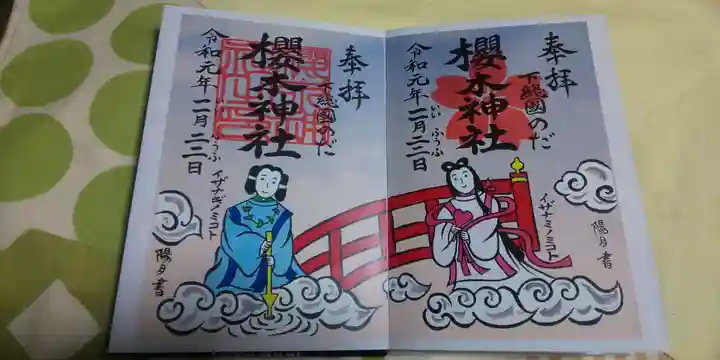 奉拝
下総國のだ
櫻木神社
令和元年一一月二二日
いい ふうふ
イザナミノミコト
陽月書
奉拝
下総國のだ
櫻木神社
令和元年一一月二二日
いい ふうふ
イザナギノミコト
陽月書